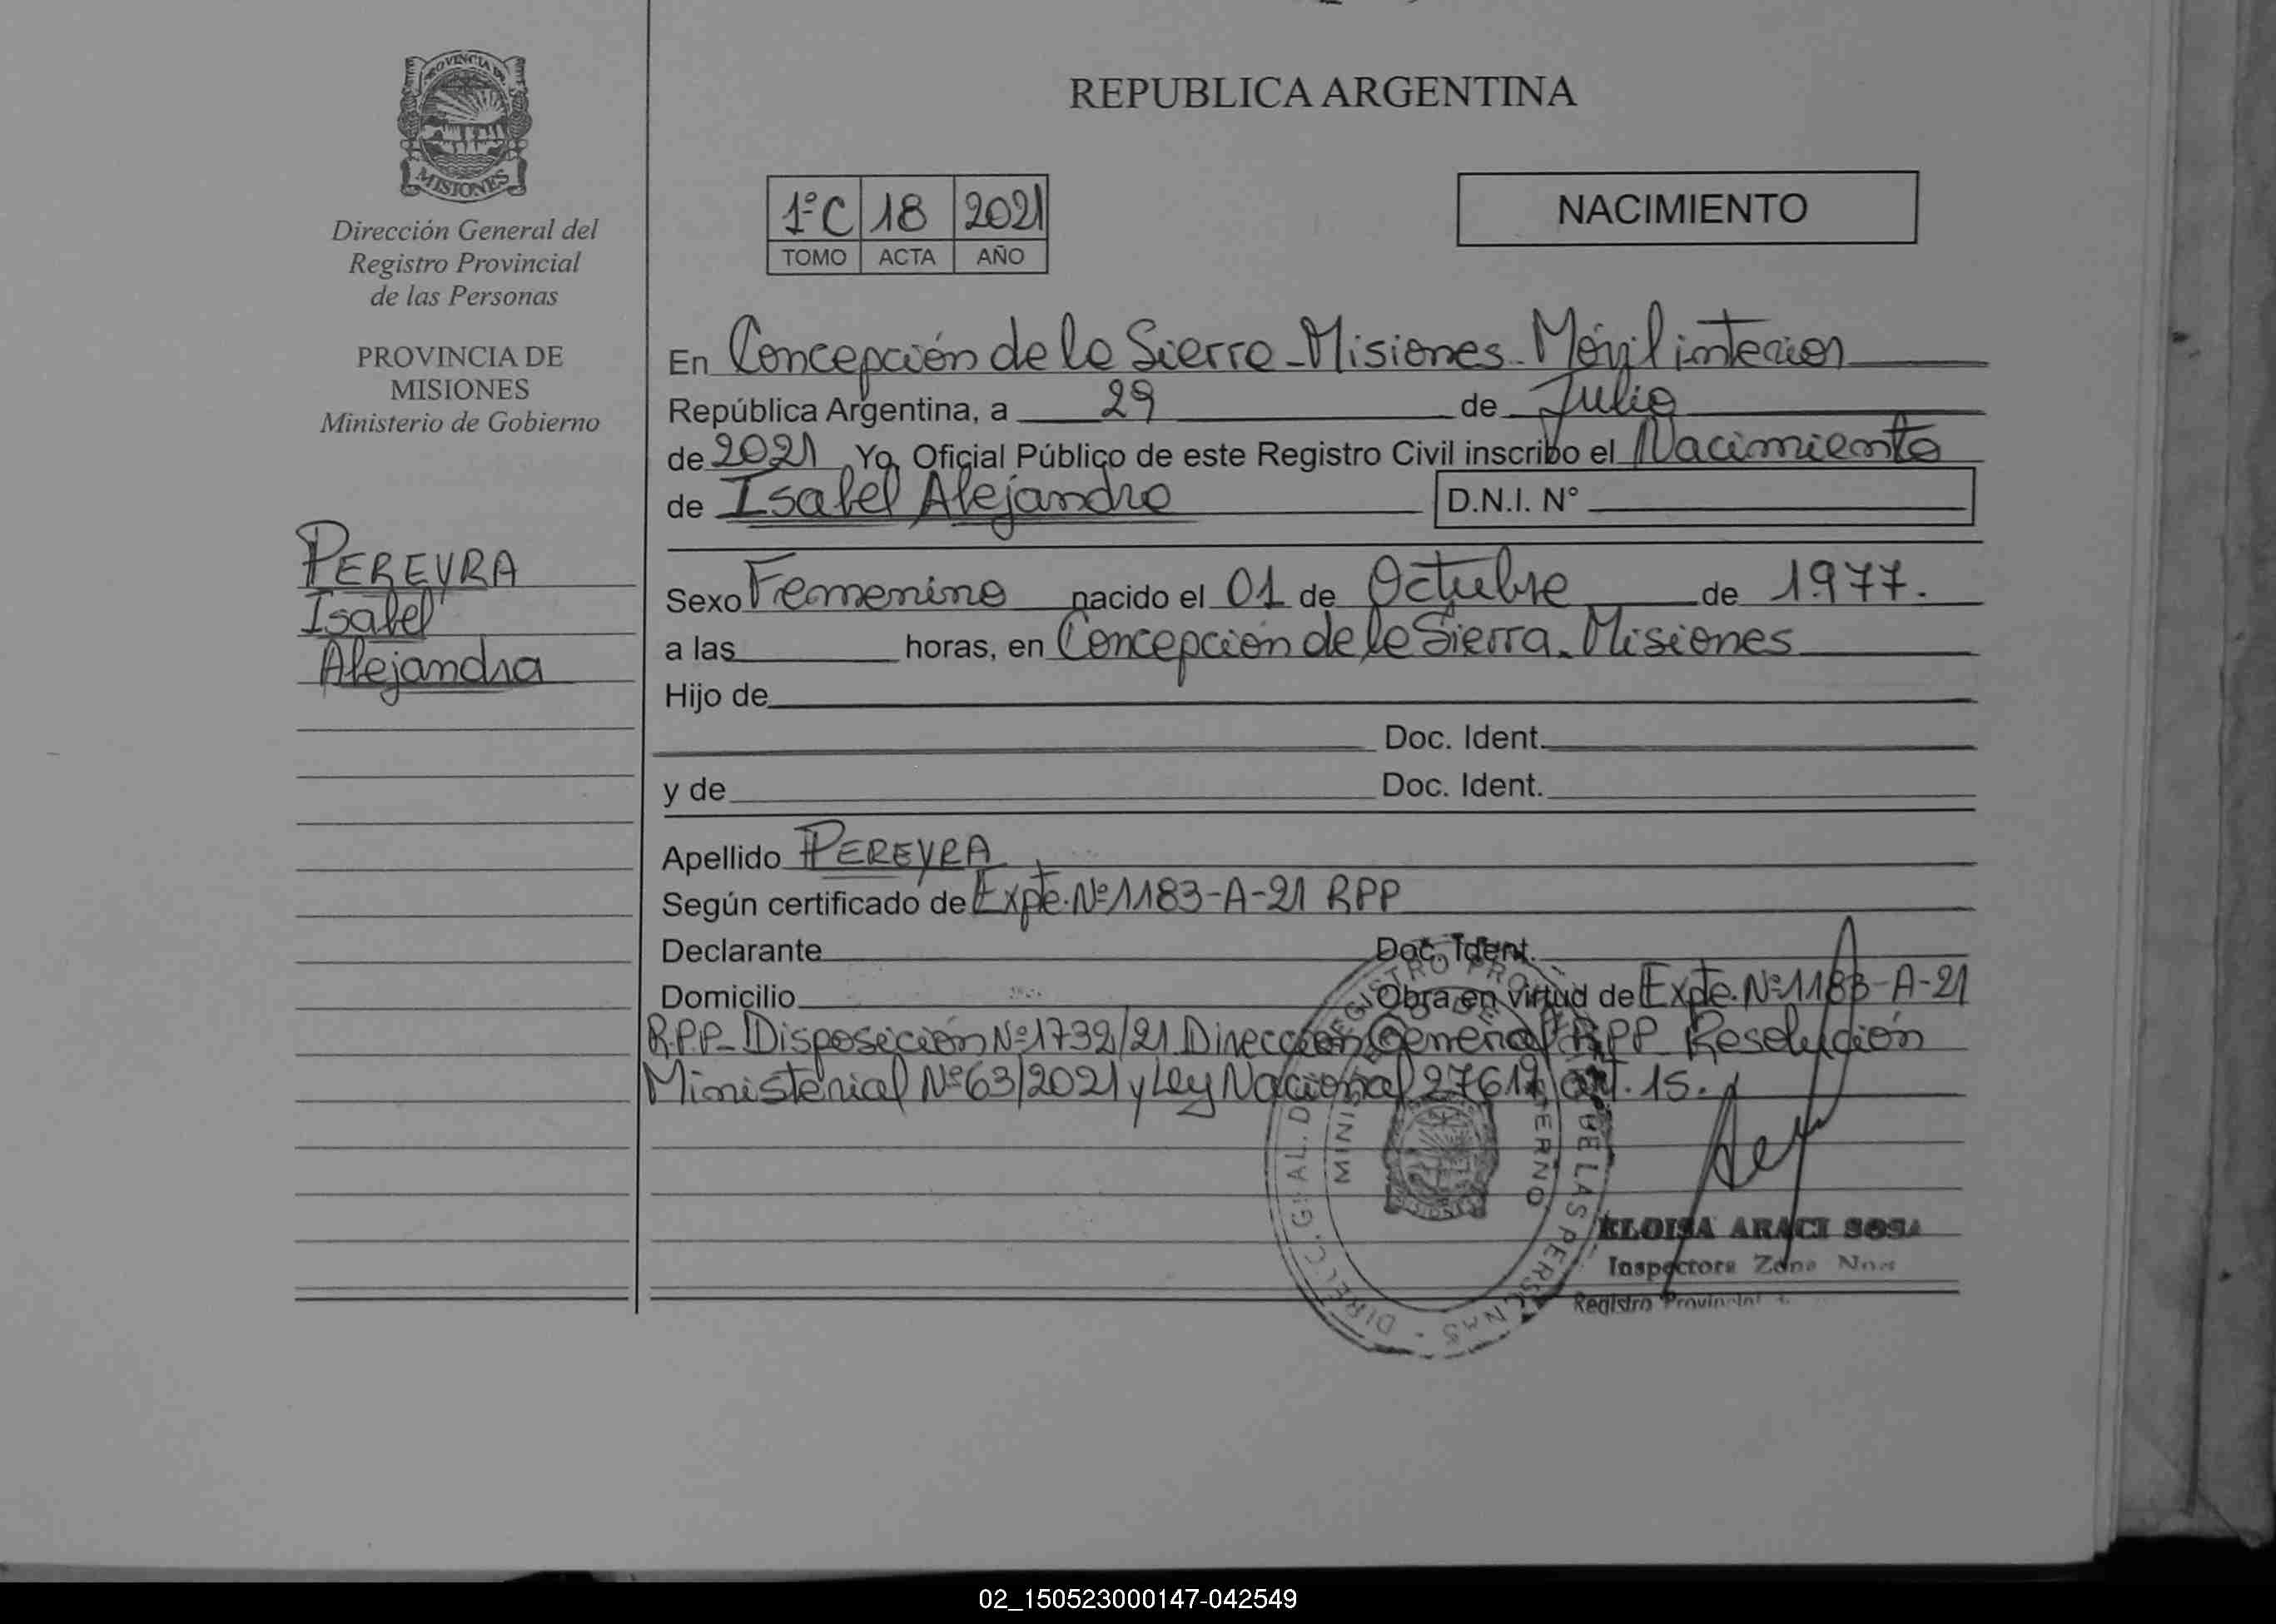 PROVINCIA DE
MISIONES
Dirección General del
Registro Provincial
de las Personas
PROVINCIA DE
MISIONES
Ministerio de Gobierno
PEREYRA
Isabel
Alejandra
REPUBLICA ARGENTINA
1ºC 18 2021
TOMO ACTA AÑO
NACIMIENTO
En Concepción de la Sierra - Misiones - Móvil interior
República Argentina, a 29 de Julio
de 2021 Yo, Oficial Público de este Registro Civil inscribo el Nacimiento
de Isabel Alejandra D.N.I. N°
Sexo Femenino nacido el 01 de Octubre de 1977.
a las horas, en Concepción de la Sierra - Misiones
Hijo de
Doc. Ident.
y de Doc. Ident.
Apellido PEREYRA
Según certificado de Expte. Nº 1183-A-21 RPP
Declarante Doc. Ident.
Domicilio Obra en virtud de Expte. Nº 1183-A-21
R.P.P - Disposición Nº 1732/21 Dirección General RPP Resolución
Ministerial Nº 63/2021 y Ley Nacional 27611 art. 15.
ELOISA ARACI SOSA
Inspectora Zona
Registro Provincial
02_150523000147-042549